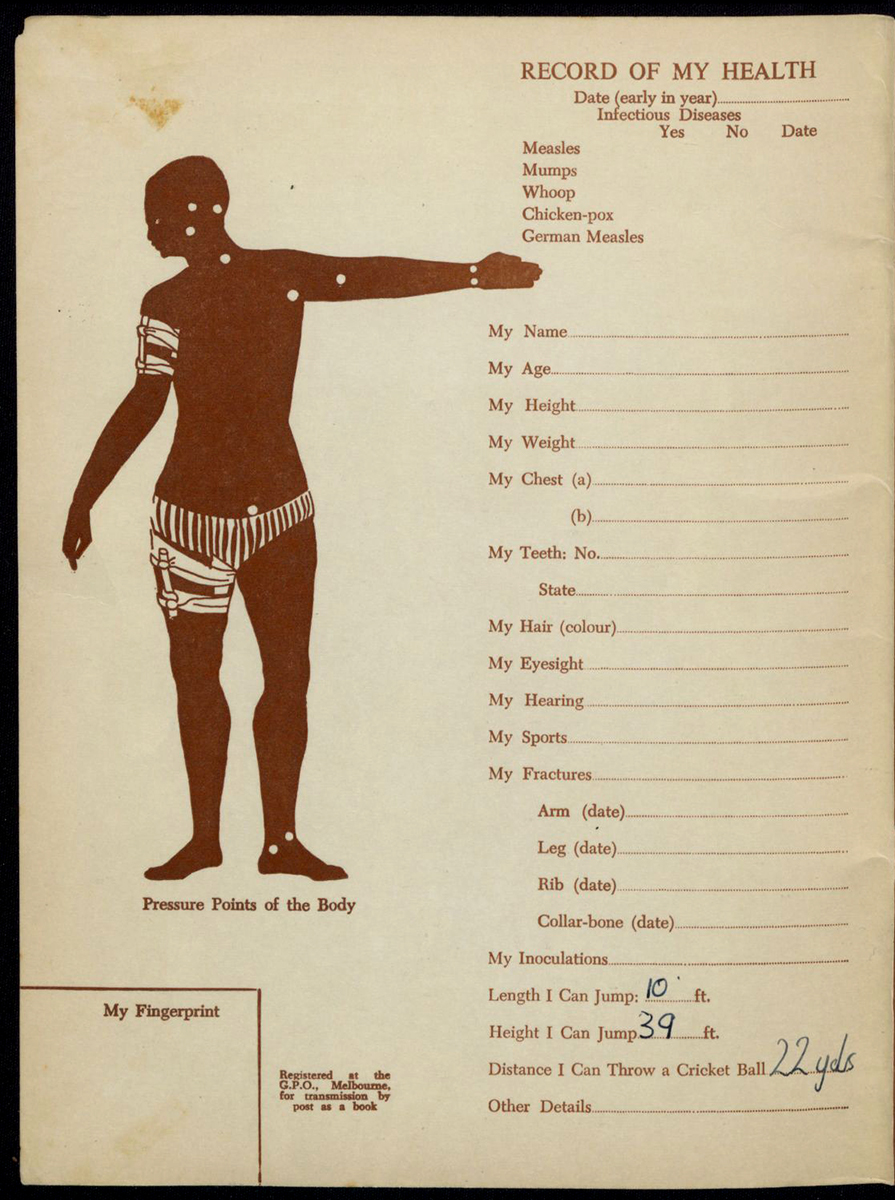 RECORD OF MY HEALTH
Date (early in year)
Infectious Diseases
Yes No Date
Measles
Mumps
Whoop
Chicken-pox
German Measles
My Name
My Age
My Height
My Weight
My Chest (a)
(b)
My Teeth: No.
State
My Hair (colour)
My Eyesight
My Hearing
My Sports
My Fractures
Arm (date)
Leg (date)
Rib (date)
Collar-bone (date)
My Inoculations
Length I Can Jump: 10 ft.
Height I Can Jump 39 ft.
Distance I Can Throw a Cricket Ball 22 yds
Other Details
Pressure Points of the Body
My Fingerprint
Registered at the
G.P.O., Melbourne,
for transmission by
post as a book